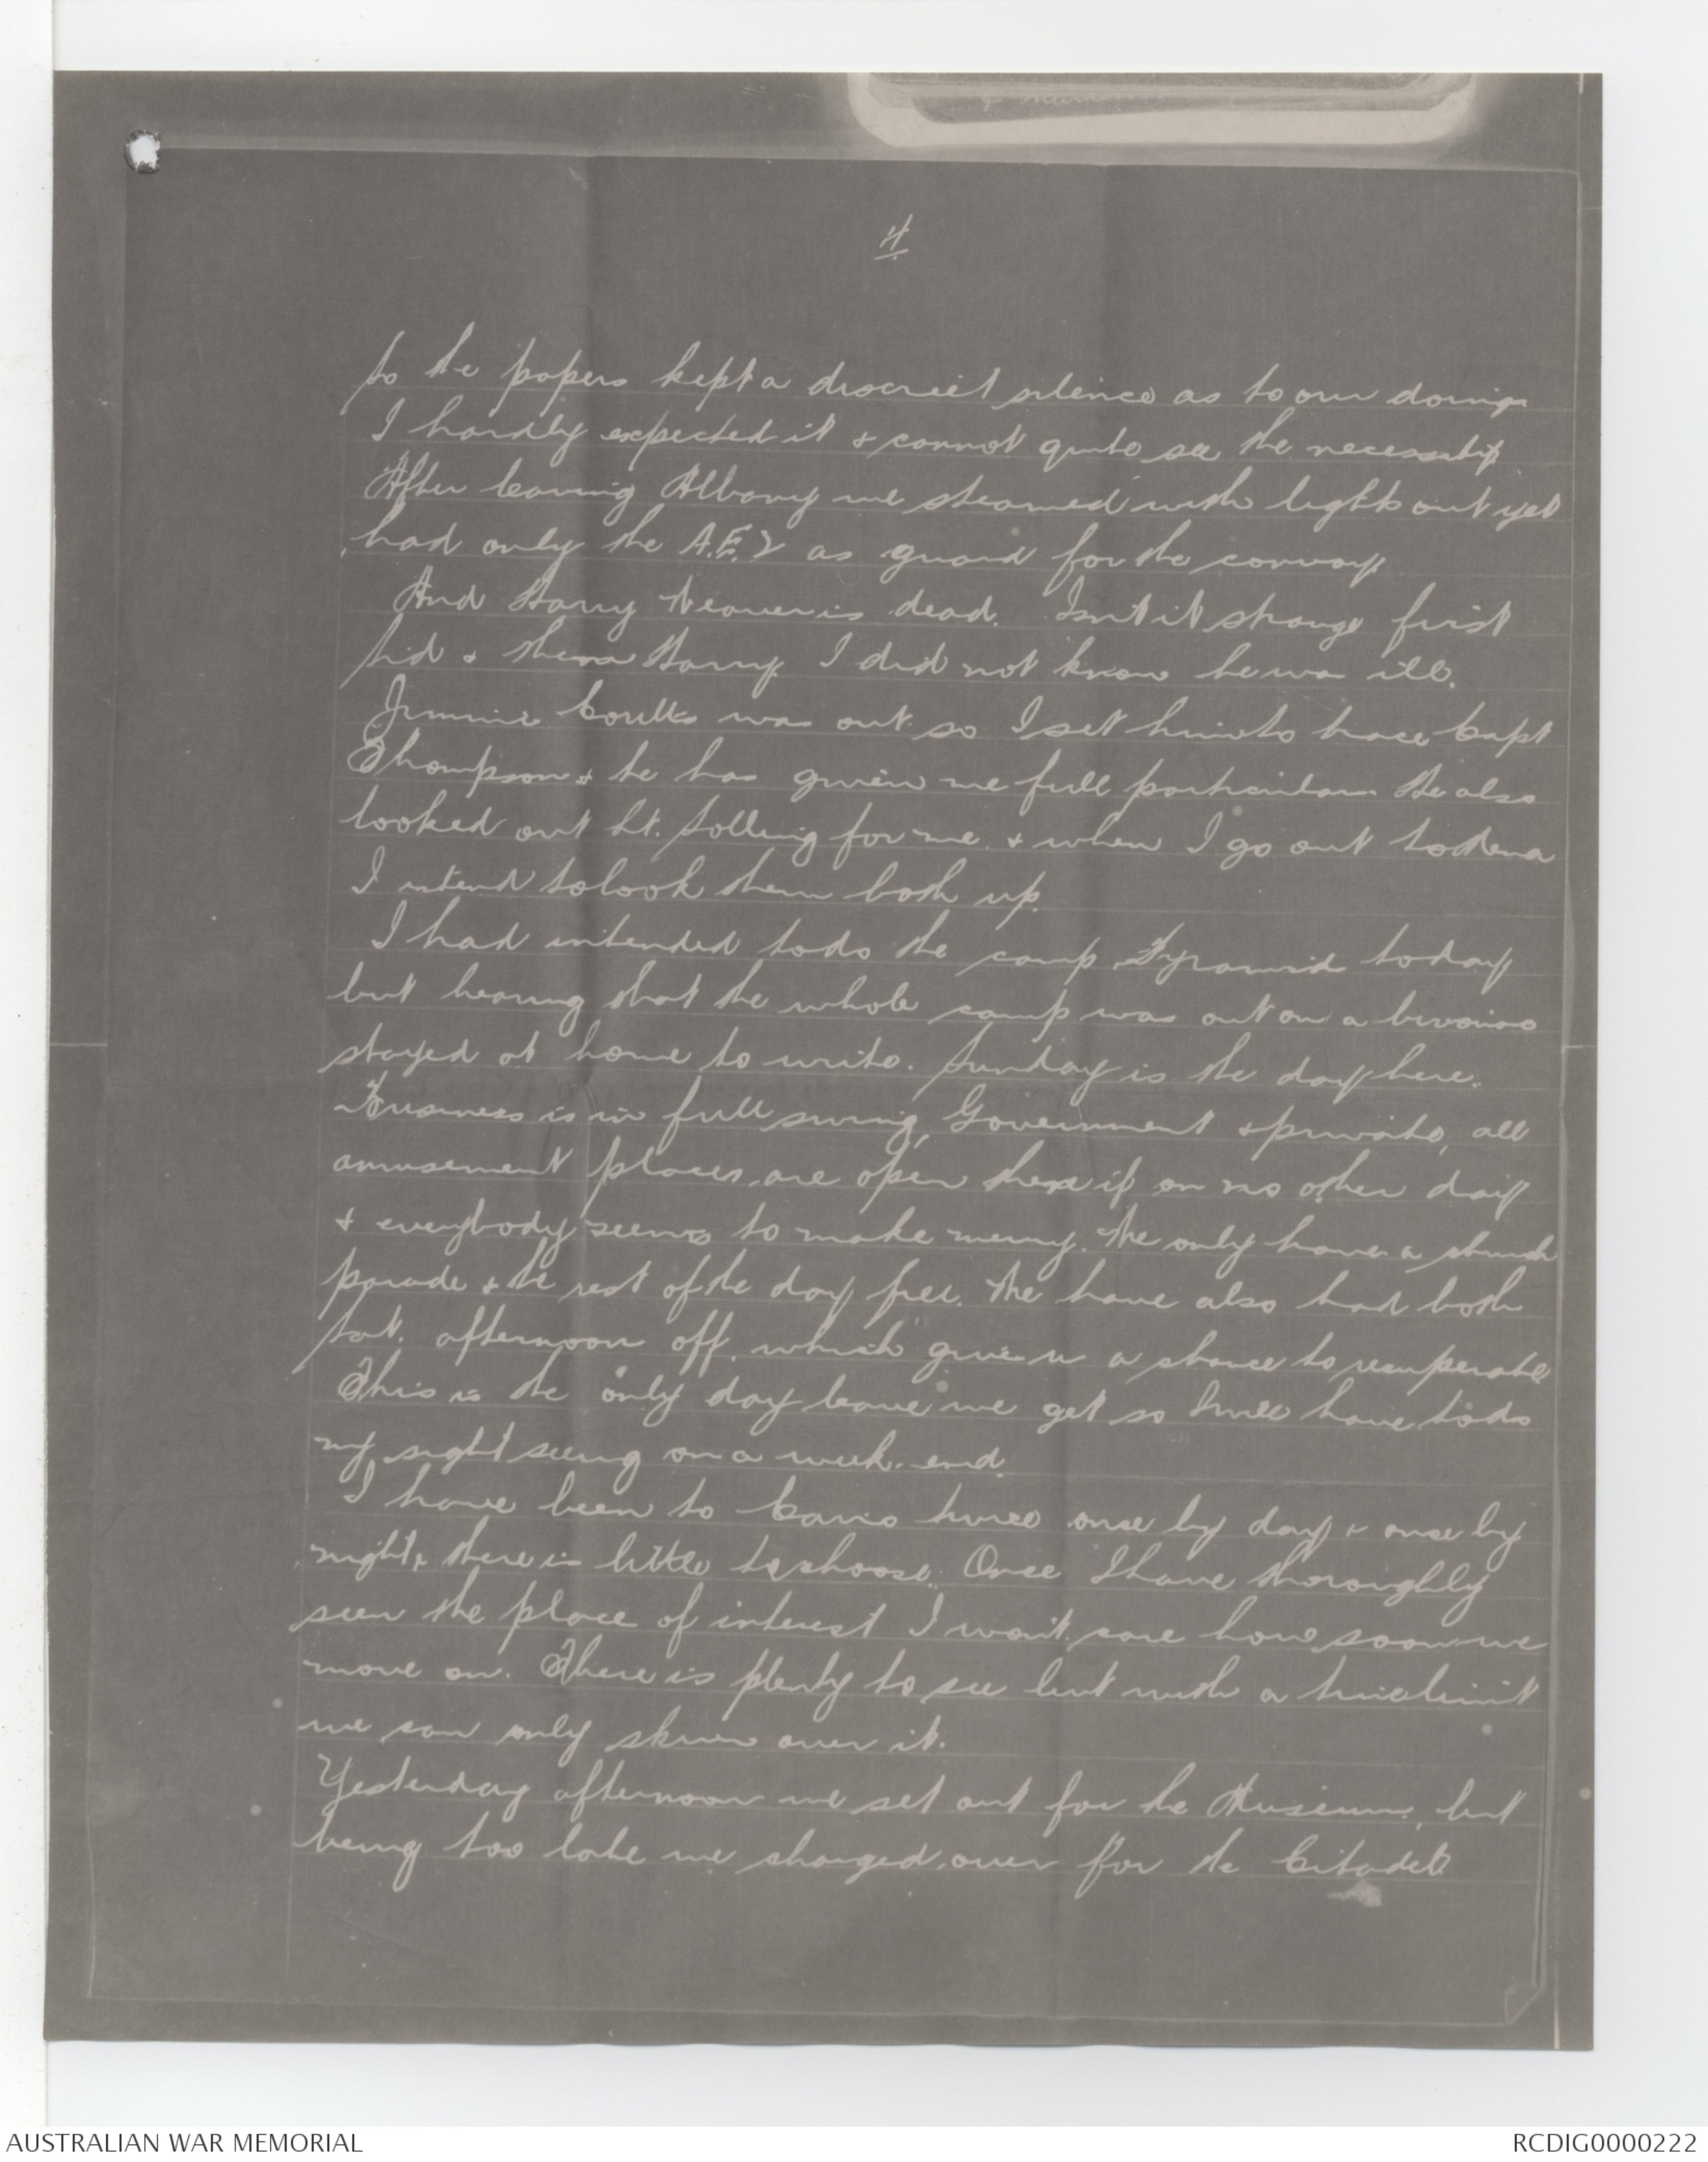 4
So the papers kept a discreet silence as to our doings
I hardly expected it & cannot quite see the necessity
After leaving Albany we steamed with lights out yet
had only the A.E.2 as guard for the convoy
And Harry is dead. Isn't it strange first
Sid & then Harry. I did not know he was ill.
Jimmie Coutts was out so I set him to trace Capt
Thompson & he has given me full particulars He also
looked out Lt. Solling for me. & when I go out to Mena
I intend to look them both up.
I had intended to do the camp Pyramid today
but hearing that the whole camp was out on a bivouac
stayed at home to write. Sunday is the day here.
Business is in full swing, Government & private, all
amusement places are open then if on no other day
& everybody seems to make merry. We only have a church
parade & the rest of the day free. We have also had both
Sat. afternoon off. which gives us a chance to recuperate
This is the only day leave we get so I will have to do
my sight seeing on a week-end.
I have been to Cairo twice once by day & once by
night & there is little to choose. Once I have thoroughly
seen the place of interest I won't care how soon we
move on. There is plenty to see but with a time limit
we can only skim over it.
Yesterday afternoon we set out for the Museum, but
being too late we changed over for the Citadel
AUSTRALIAN WAR MEMORIAL
RCDIG0000222